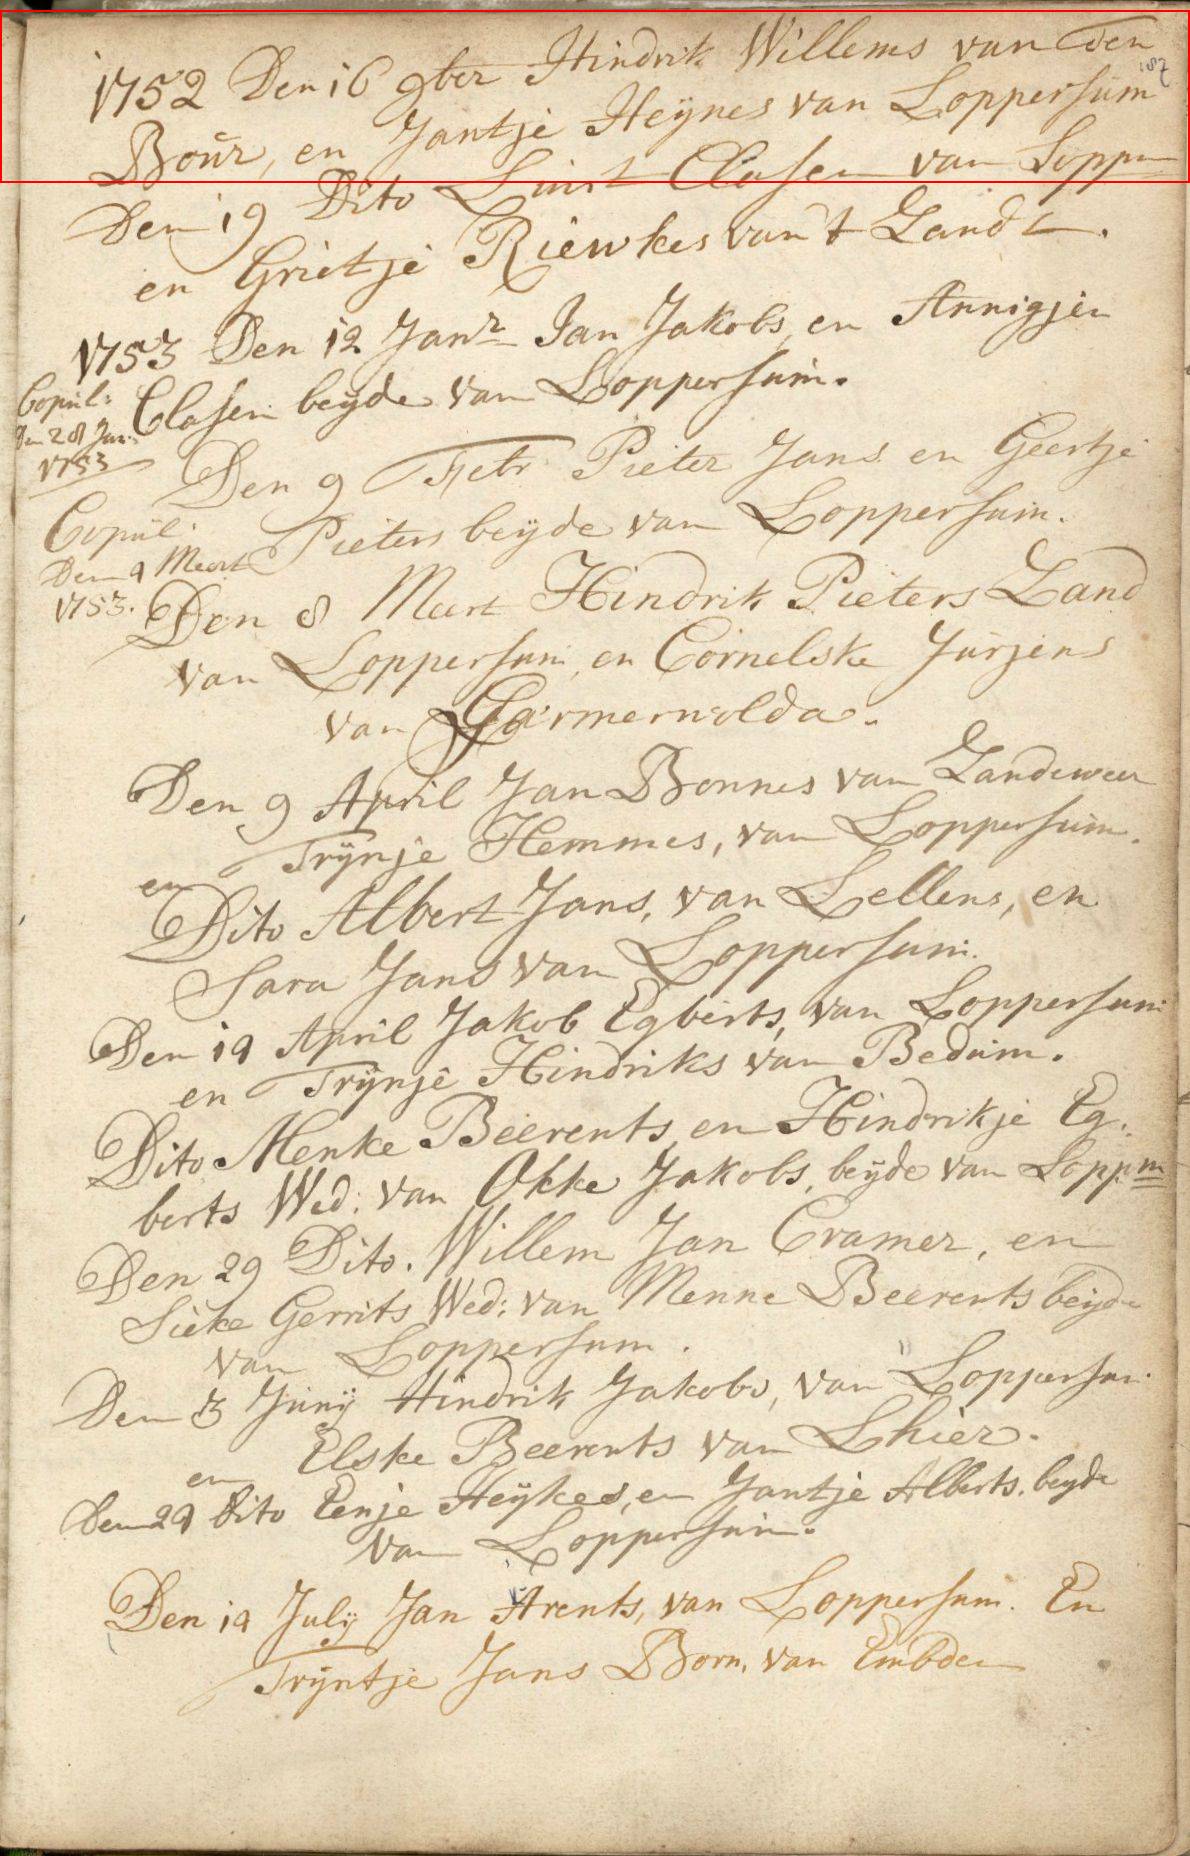 1752 Den 16 9ber Hindrik Willems van Den
187
Boúr, en Jantje Heÿnes van Loppersúm
Den 19 Dito Clasen van Loppm
en Grietje Riewkes van 't Zandt.
1753 Den 12 Janr Jan Jakobs, en Annigjen
Clasen beÿde van Loppersúm.
Copúl:
Den 28 Jan:
1753
Den 9 Febr Pieter Jans en Geertje
Pieters beÿde van Loppersúm.
Copúl:
Den 9 Meert
1753.
Den 8 Meert Hindrik Pieters Land
van Loppersum, en Cornelske Júrjens
van Garmerwolda.
Den 9 April Jan Bonnes van Zandeweer
en Trÿnje Hemmes, van Loppersúm.
Dito Albert Jans, van Lellens, en
Sara Jans van Loppersum.
Den 19 April Jakob Egberts, van Loppersum
en Trÿnje Hindriks van Bedúm.
Dito Menke Beerents, en Hindrikje Eg.
berts Wed: van Okke Jakobs, beÿde van Loppm
Den 29 Dito. Willem Jan Cramer, en
Sieke Gerrits Wed: van Menne Beerents beÿde
van Loppersum.
Den 3 Junÿ Hindrik Jakobs, van Loppersum.
en Elske Beerents van Lhier.
Den 29 Dito Eenje Heÿkes, en Jantje Alberts. beÿde
van Loppersúm.
Den 19 Julÿ Jan Arents, van Loppersum. En
Trÿntje Jans Born, van Embden